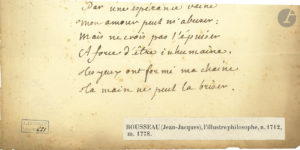 Par une espérance vaine
Mon amour peut m'abuser:
Mais ne crois pas l'épuiser
A force d'être inhumaine.
Tes yeux ont formé ma chaine
Ta main ne peut la briser.
ROUSSEAU (Jean-Jacques), l'illustre philosophe, n. 1712,
m. 1778.